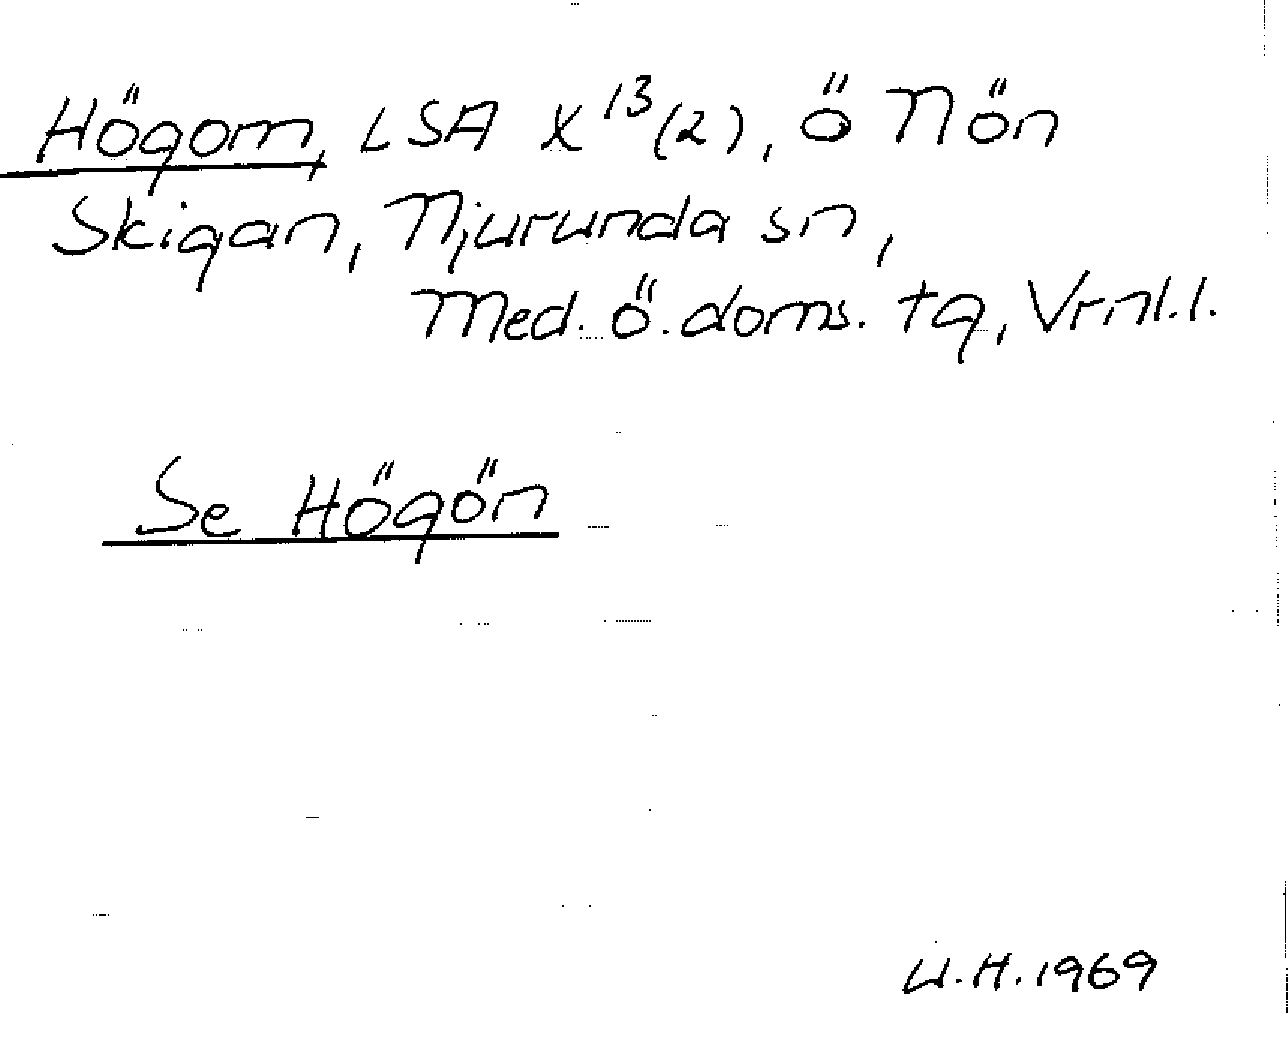 Högom, LSA X 13 (2), ö NÖn
Skigan, Njurunda sn,
Med. ö. doms. tg, Vrnl.l.
Se Högön
U.H. 1969